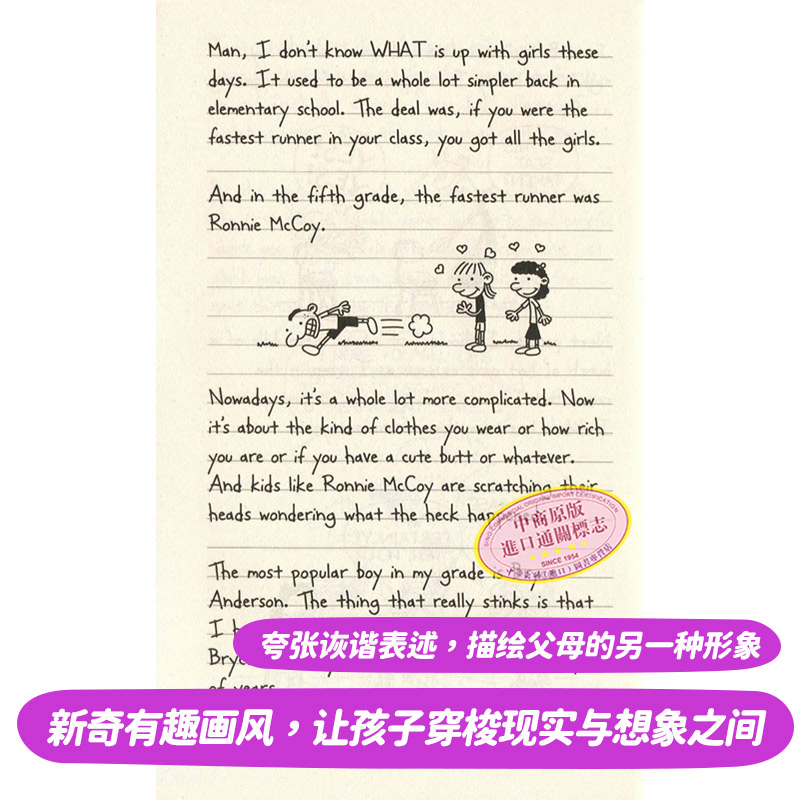 Man, I don't know WHAT is up with girls these
days. It used to be a whole lot simpler back in
elementary school. The deal was, if you were the
fastest runner in your class, you got all the girls.
And in the fifth grade, the fastest runner was
Ronnie McCoy.
Nowadays, it's a whole lot more complicated. Now
it's about the kind of clothes you wear or how rich
you are or if you have a cute butt or whatever.
And kids like Ronnie McCoy are scratching their
heads wondering what the heck
中商原版
進口通關標志
SINCE 1954
The most popular boy in my grade is
Anderson. The thing that really stinks is that
I
夸张诙谐表述，描绘父母的另一种形象
of years
新奇有趣画风，让孩子穿梭现实与想象之间